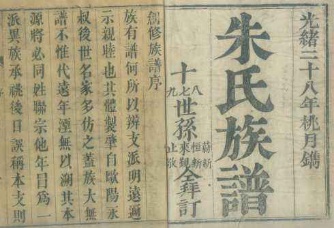 光緒二十八年桃月鐫
朱氏族譜
十七八九世孫
仝拜訂
創修族譜序
族有譜何所以辨支派明遠邇
示親睦也其體製肇自歐陽永
叔後世名家多仿之蓋族大無
譜不惟代遠年湮無以溯其本
源將必同姓聯宗他年目為一
派異族承祧後日誤稱本支則